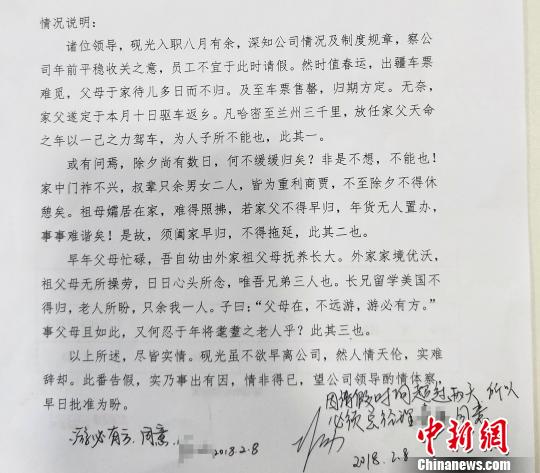 情况说明：
诸位领导，砚光入职八月有余，深知公司情况及制度规章，察公
司年前平稳收关之意，员工不宜于此时请假。然时值春运，出疆车票
难觅，父母于家待儿多日而不归。及至车票售罄，归期方定。无奈，
家父遂定于本月十日驱车返乡。凡哈密至兰州三千里，放任家父天命
之年以一己之力驾车，为人子所不能也，此其一。
或有问焉，除夕尚有数日，何不缓缓归矣？非是不想，不能也！
家中门祚不兴，叔辈只余男女二人，皆为重利商贾，不至除夕不得休
憩矣。祖母孀居在家，难得照拂，若家父不得早归，年货无人置办，
事事难谐矣！是故，须阖家早归，不得拖延，此其二也。
早年父母忙碌，吾自幼由外家祖父母抚养长大。外家家境优沃，
祖父母无所操劳，日日心头所念，唯吾兄弟三人也。长兄留学美国不
得归，老人所盼，只余我一人。子曰：“父母在，不远游，游必有方。”
事父母且如此，又何忍于年将耄耋之老人乎？此其三也。
以上所述，尽皆实情。砚光虽不欲早离公司，然人情天伦，实难
辞却。此番告假，实乃事出有因，情非得已，望公司领导酌情体察，
早日批准为盼。
因请假时间超过两天 所以
必须总经理 同意
游必有方，同意，
2018.2.8
2018.2.8
中新网
Chinanews.com